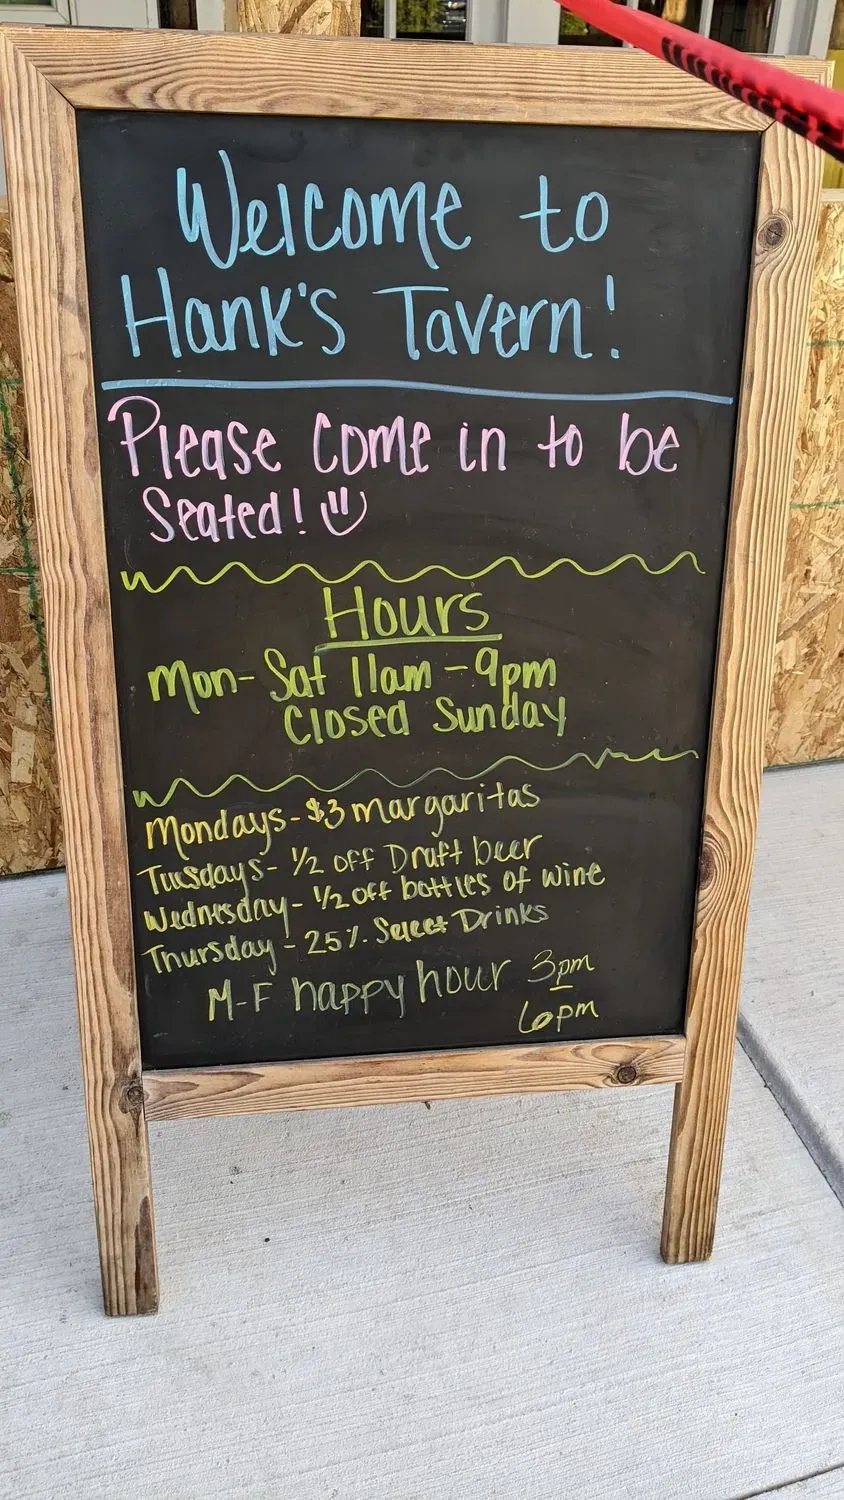 Welcome to
Hank's Tavern!
Please come in to be
Seated!
Hours
Mon-Sat 11am-9pm
Closed Sunday
Mondays-$3 margaritas
Tuesdays- 1/2 off Draft beer
Wednesday- 1/2 off bottles of wine
Thursday- 25% Select Drinks
M-F happy hour 3pm
6pm